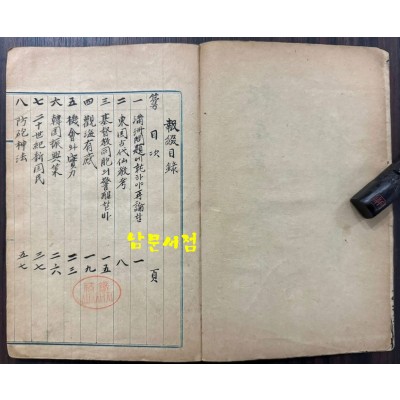 報綴目錄
第 目次 頁
一 滿洲問題에就하야再論함 一
二 東国古代仙敎考 八
三 基督敎同胞의警醒할바 一五
四 觀漁有感 一九
五 機會와實力 二三
六 韓国振興策 二六
七 二十世紀新国民 三七
八 防砲神法 五七
남문서점